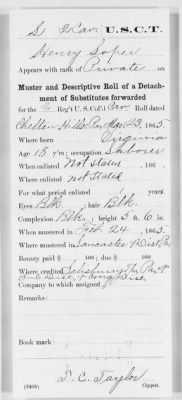 S 6 Cav. U.S.C.T.
Henry Soper
Appears with rank of Private on
Muster and Descriptive Roll of a Detach-
ment of Substitutes forwarded
for the 6 Reg't U.S. Col'd Cav. Roll dated
Chelten Hills Pa, Mar 23, 1865.
Where born Virginia
Age 18 y'rs; occupation Laborer
When enlisted Not stated, 186 .
Where enlisted Not stated
For what period enlisted 1 years.
Eyes Blk; hair Blk.
Complexion Blk; height 5 ft. 6 in.
When mustered in Feb. 24, 1865.
Where mustered in Lancaster 9 Dist, Pa
Bounty paid $ 100; due $ 100
Where credited Salisbury Twp Pa 9th
Sub Dist Cong Dist
Company to which assigned
Remarks:
Book mark:
T. C. Taylor
(340b) Copyist.